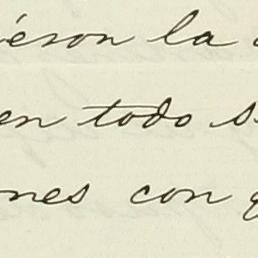 ieron la
en todo s
ones con q